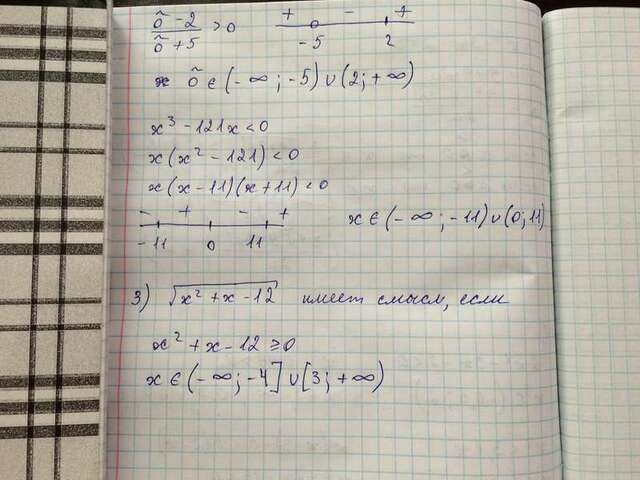 õ-2/õ+5 > 0
+ - +
-5 2
x õ ∈ (-∞; -5) ∪ (2; +∞)
x³ - 121x < 0
x(x² - 121) < 0
x(x - 11)(x + 11) < 0
- + - +
-11 0 11
x ∈ (-∞; -11) ∪ (0; 11)
3) √x² + x - 12 имеет смысл, если
x² + x - 12 ≥ 0
x ∈ (-∞; -4] ∪ [3; +∞)